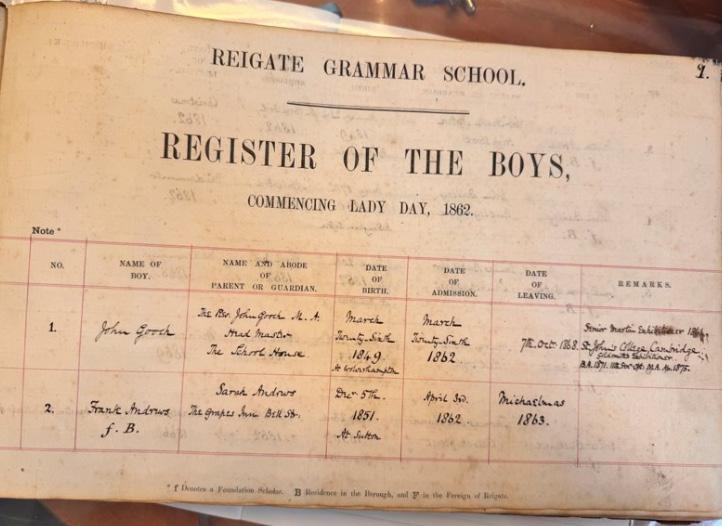 1.
REIGATE GRAMMAR SCHOOL.
REGISTER OF THE BOYS,
COMMENCING LADY DAY, 1862.
Note *
NO.
NAME OF
BOY.
NAME AND ABODE
OF
PARENT OR GUARDIAN.
DATE
OF
BIRTH.
DATE
OF
ADMISSION.
DATE
OF
LEAVING.
REMARKS.
1.
John Gooch
The Rev. John Gooch M. A.
Head Master
The School House
March
Twenty Sixth
1849
At Wolverhampton
March
Twenty Sixth
1862
7th Oct. 1868.
Senior Martin Exhibitioner
St John's College Cambridge
Goldsmiths Exhibitioner.
B.A. 1871. M.A. 1875.
2.
Frank Andrews
f. B.
Sarah Andrews
The Grapes Inn Bell St.
Dec. 5th.
1851.
At Sutton
April 3rd.
1862
Michaelmas
1863.
* f Denotes a Foundation Scholar. B Residence in the Borough, and F in the Foreign of Reigate.